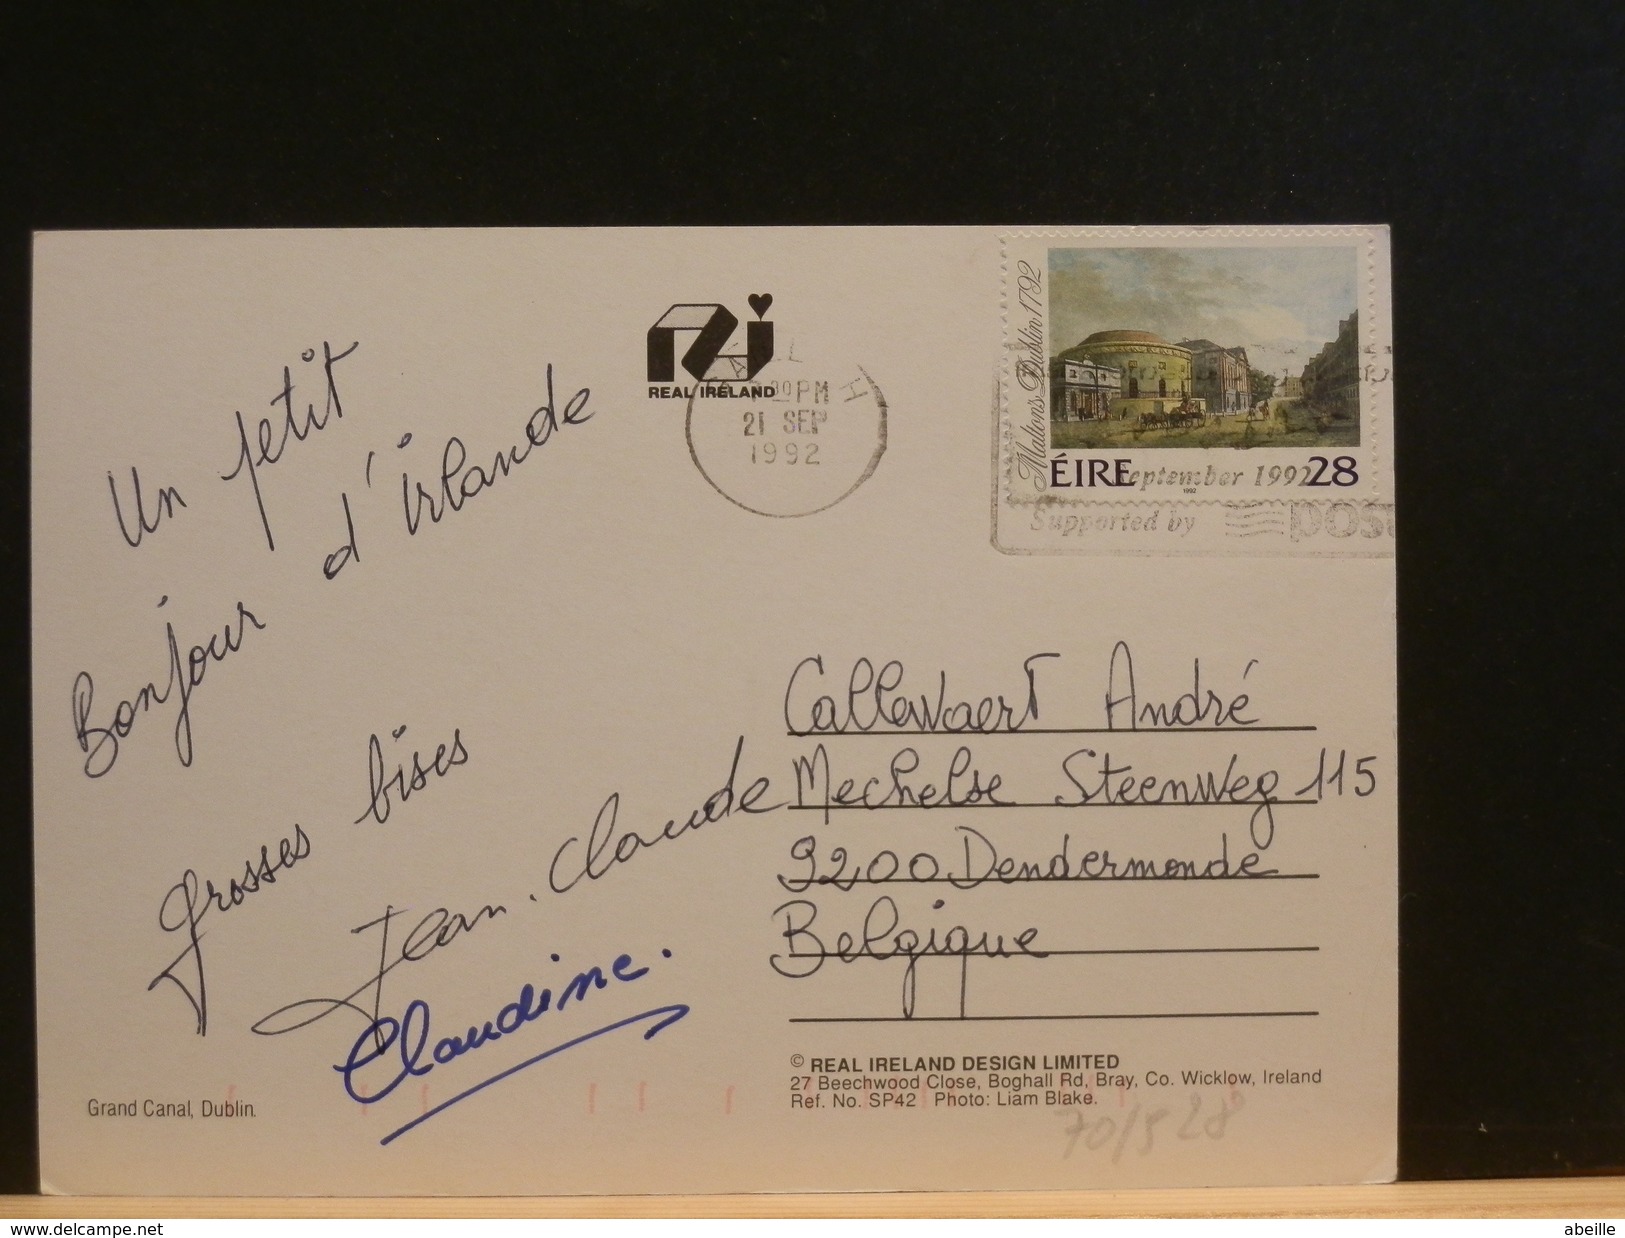 Un petit
Bonjour d'irlande
grosses bises
Jean-Claude
Claudine.
Grand Canal, Dublin.
REAL IRELAND
PM
21 SEP
1992
Maltons Dublin 1792
ÉIRE 28
1992
September 1992
Supported by
Callewaert André
Mechelse Steenweg 115
9200 Dendermonde
Belgique
© REAL IRELAND DESIGN LIMITED
27 Beechwood Close, Boghall Rd, Bray, Co. Wicklow, Ireland
Ref. No. SP42 Photo: Liam Blake.
70/528
www.delcampe.net
abeille